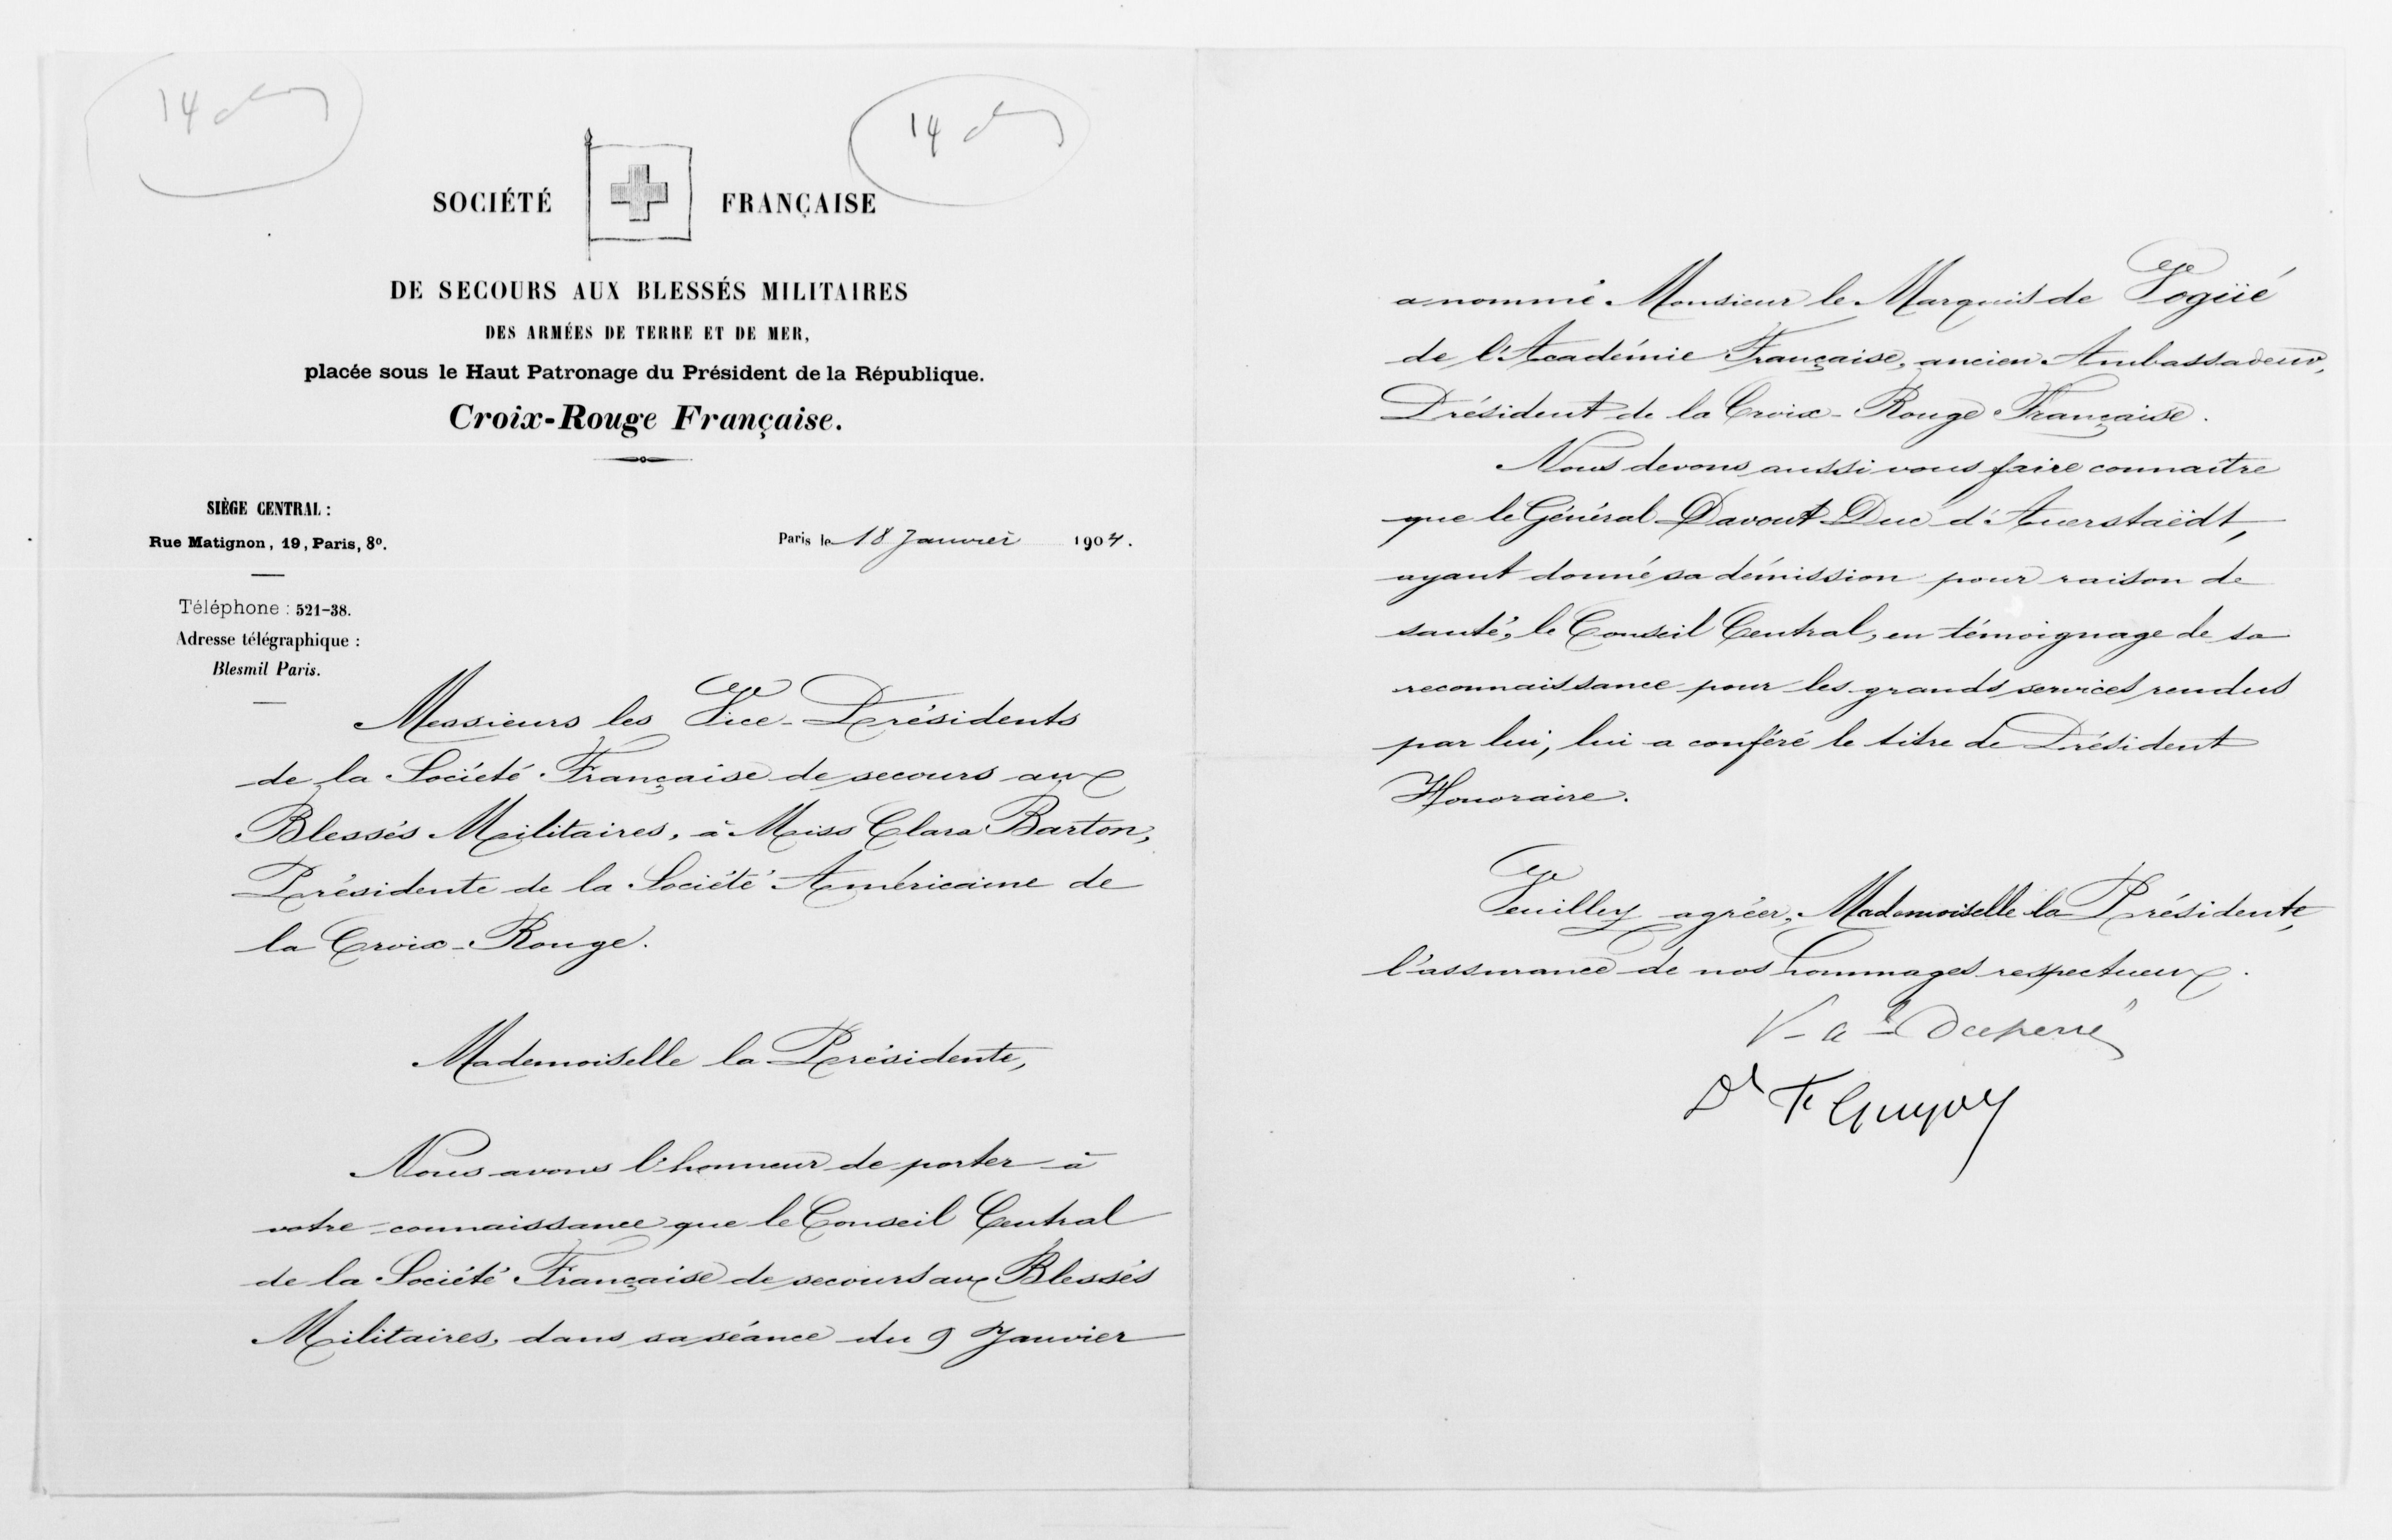 14
14
SOCIÉTÉ FRANÇAISE
DE SECOURS AUX BLESSÉS MILITAIRES
DES ARMÉES DE TERRE ET DE MER,
placée sous le Haut Patronage du Président de la République.
Croix-Rouge Française.
SIÈGE CENTRAL :
Rue Matignon, 19, Paris, 8º.
Paris le 18 Janvier 1904.
Téléphone : 521-38.
Adresse télégraphique :
Blesmil Paris.
Messieurs les Vice-Présidents
de la Société Française de secours aux
Blessés Militaires, à Miss Clara Barton,
Présidente de la Société Américaine de
la Croix-Rouge.
Mademoiselle la Présidente,
Nous avons l'honneur de porter à
votre connaissance que le Conseil Central
de la Société Française de secours aux Blessés
Militaires, dans sa séance du 9 Janvier
a nommé Monsieur le Marquis de Vogüé
de l'Académie Française, ancien Ambassadeur,
Président de la Croix-Rouge Française.
Nous devons aussi vous faire connaître
que le Général Davout Duc d'Auerstaëdt,
ayant donné sa démission pour raison de
santé, le Conseil Central, en témoignage de sa
reconnaissance pour les grands services rendus
par lui, lui a conféré le titre de Président
Honoraire.
Veuillez agréer, Mademoiselle la Présidente,
l'assurance de nos hommages respectueux.
V-a l Duperré
Dr F Guyon